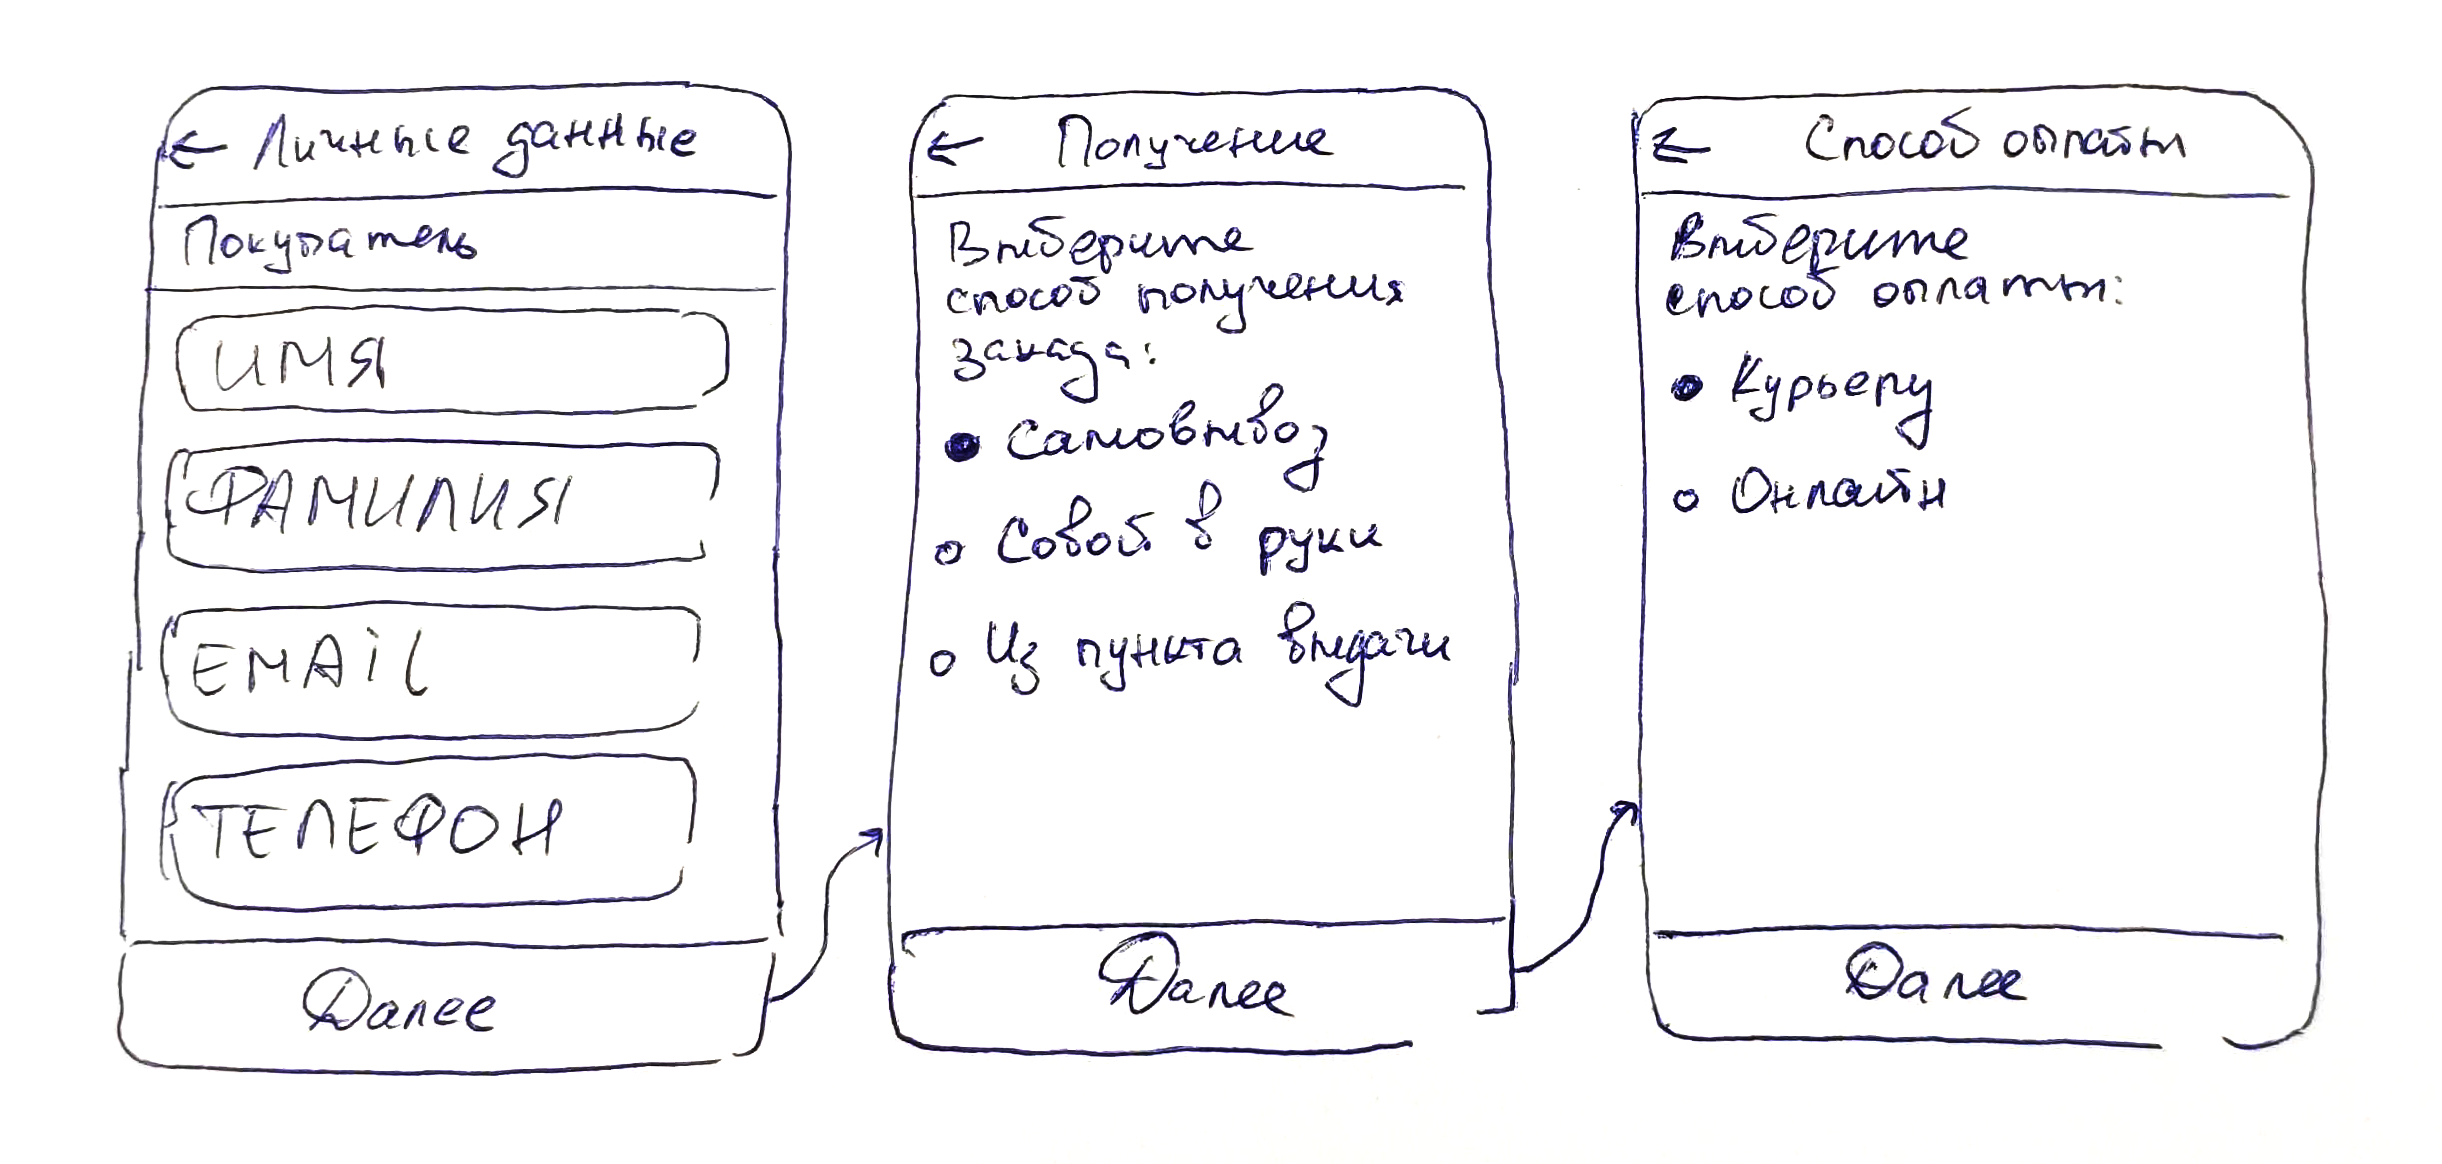 ← Личные данные
Покупатель
ИМЯ
ФАМИЛИЯ
EMAiL
ТЕЛЕФОН
Далее
← Получение
Выберите
способ получения
закада:
Самовывоз
Совой в руки
Из пункта выдачи
Далее
← Способ оплаты
Выберите
способ оплаты:
Курьеру
Онлайн
Далее